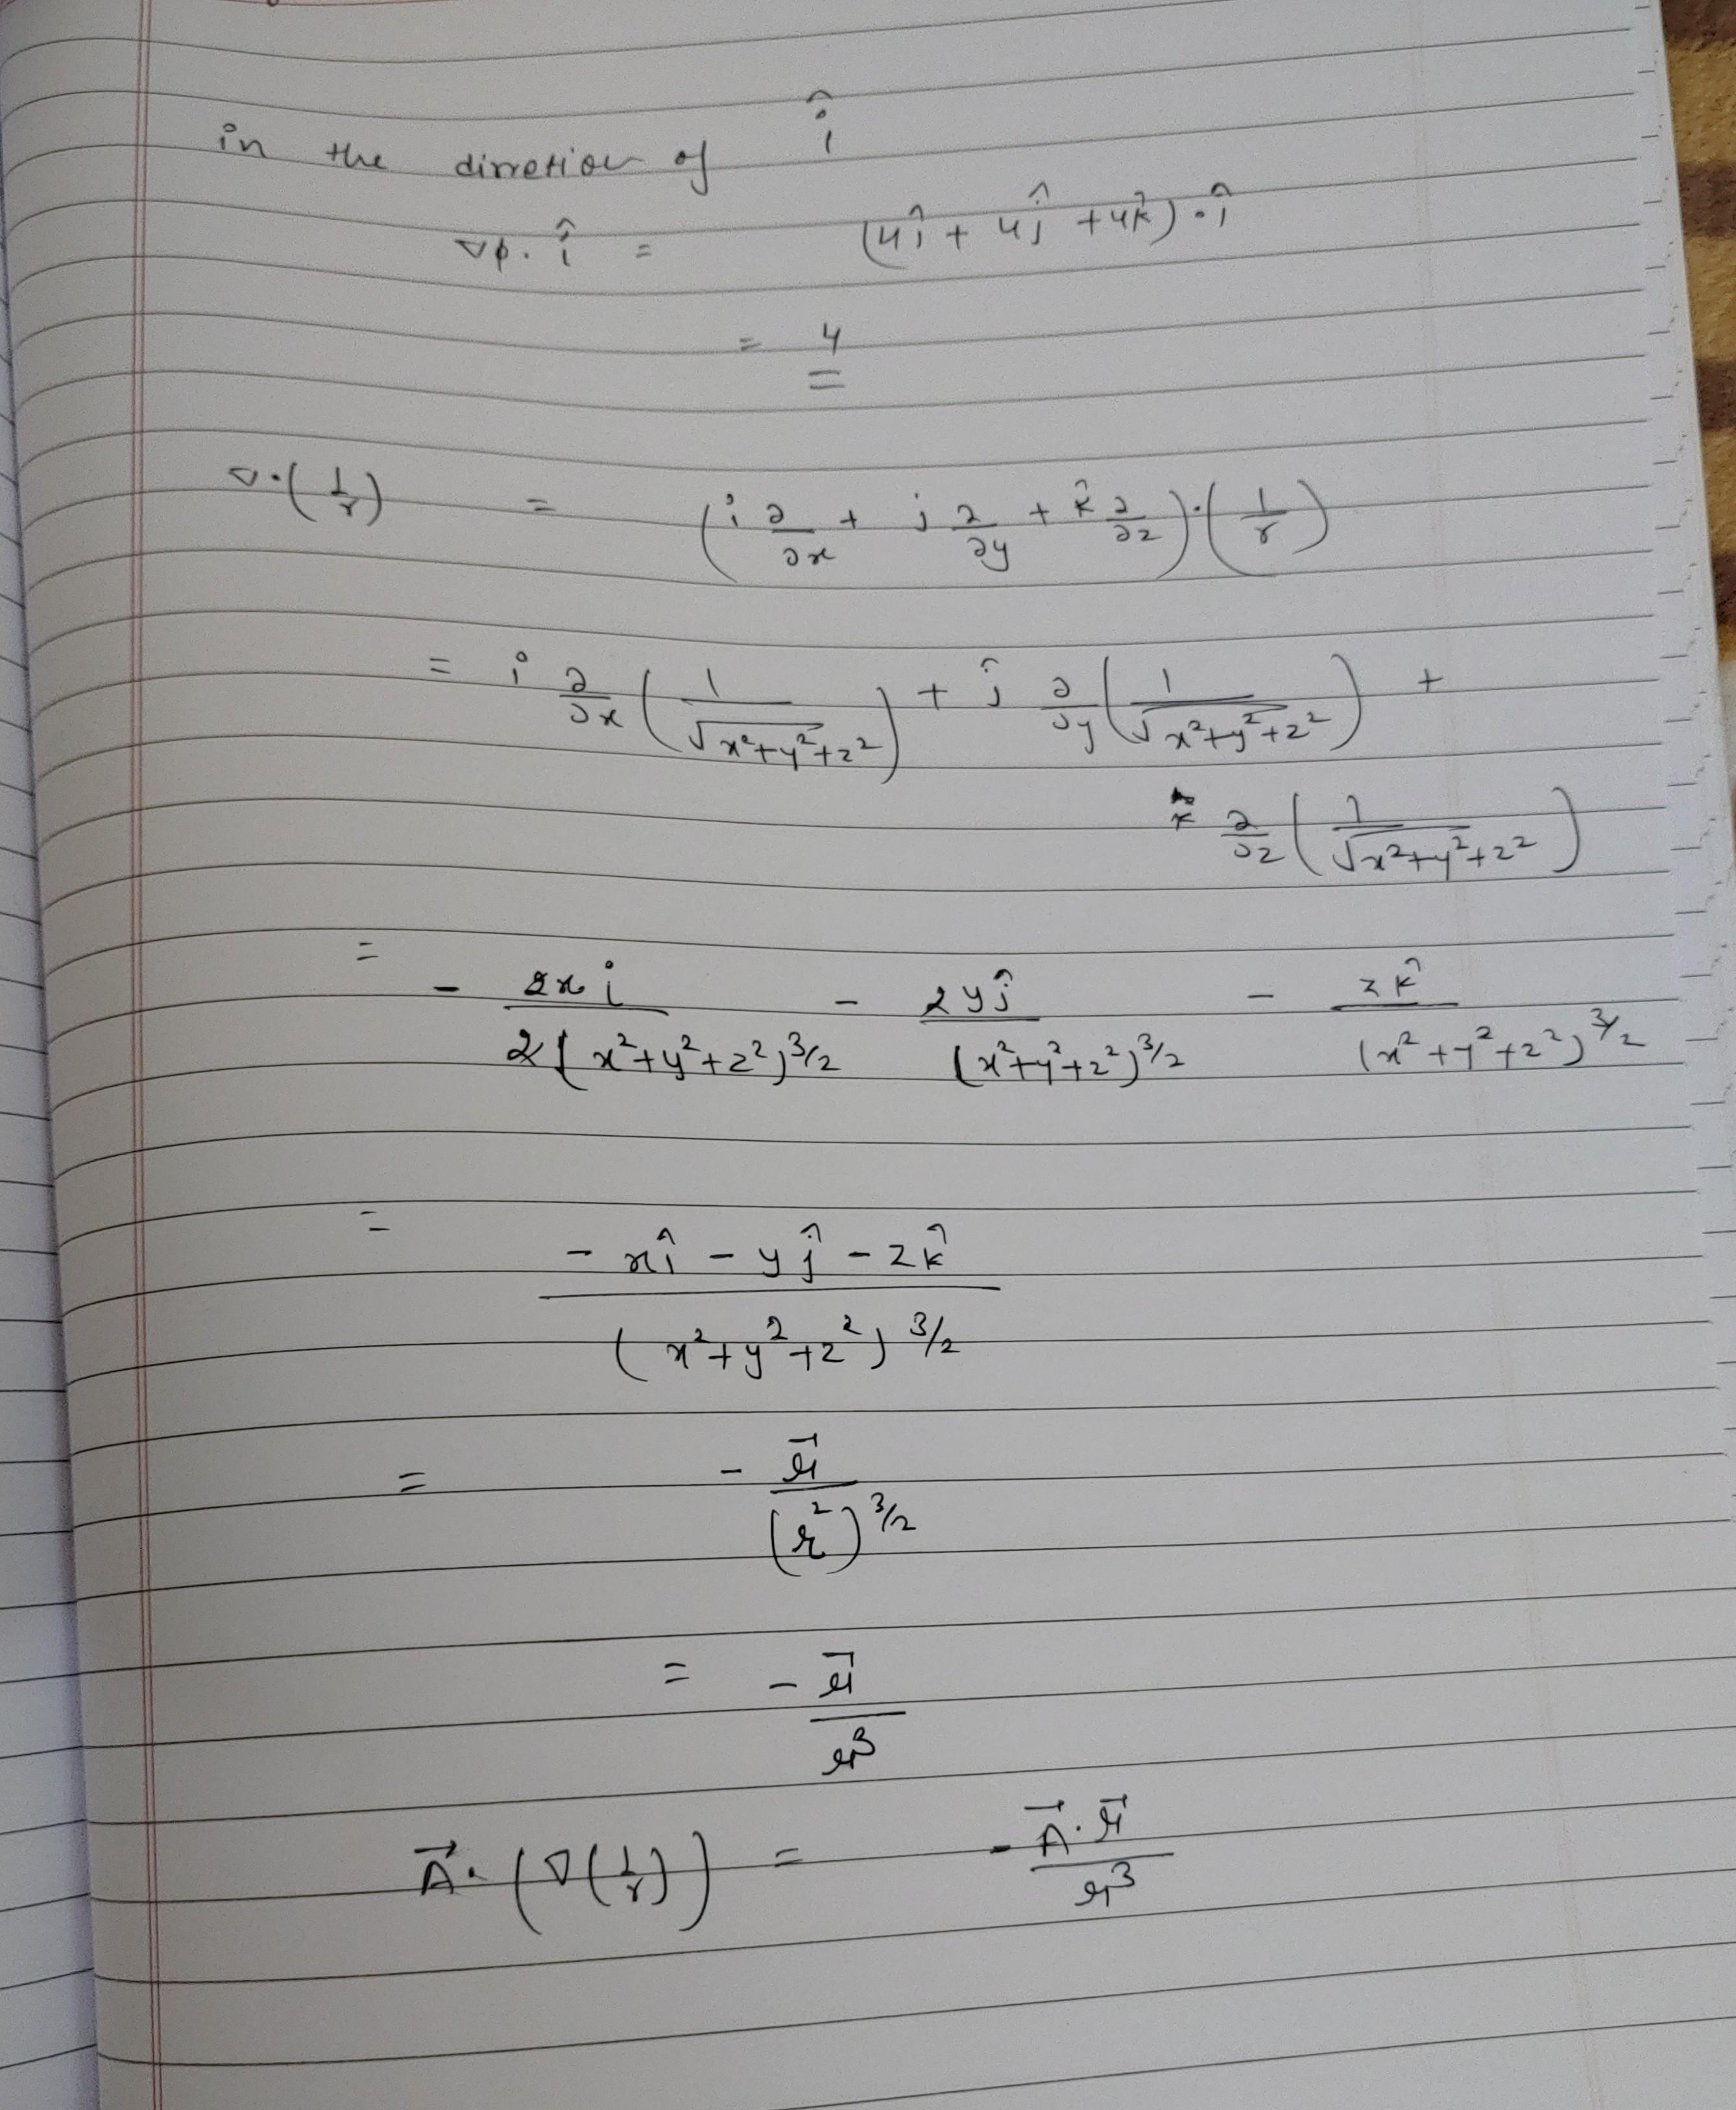 in the dirretion of î
∇φ. î = (4î + 4ĵ + 4k̂) . î
= 4
∇·(1/r) = (i ∂/∂x + j ∂/∂y + k̂ ∂/∂z)·(1/r)
= i ∂/∂x (1/√x²+y²+z²) + ĵ ∂/∂y (1/√x²+y²+z²) +
k̂ ∂/∂z (1/√x²+y²+z²)
= - 2x i / 2(x²+y²+z²)^3/2 - 2yĵ / (x²+y²+z²)^3/2 - zk̂ / (x²+y²+z²)^3/2
= - xî - yĵ - zk̂ / (x²+y²+z²)^3/2
= - r⃗ / (r²)^3/2
= - r⃗ / r³
A⃗· (∇(1/r)) = - A⃗·r⃗ / r³